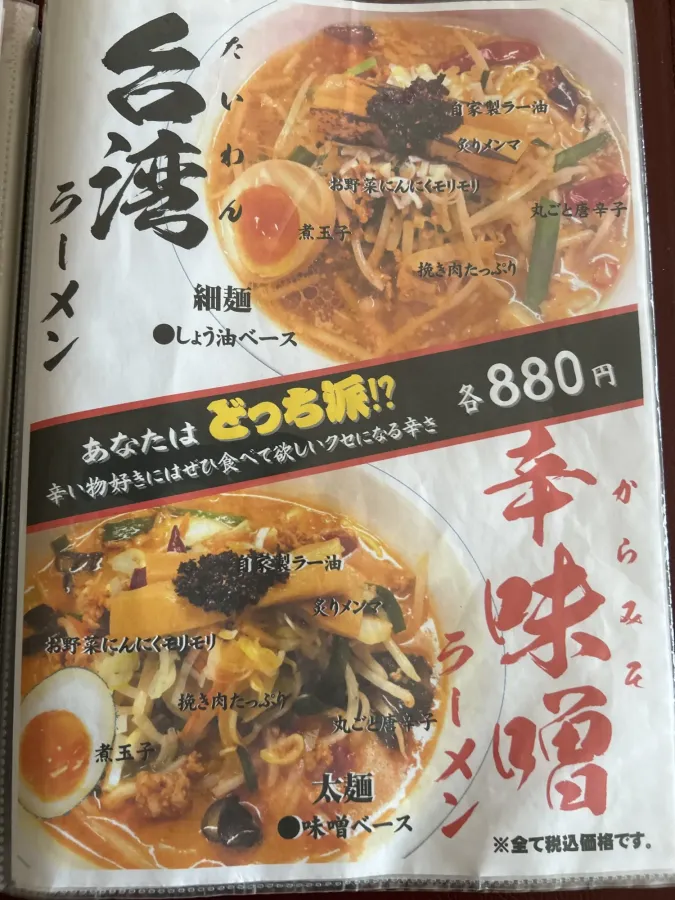 台湾
たいわん
ラーメン
自家製ラー油
炙りメンマ
お野菜にんにくモリモリ
丸ごと唐辛子
煮玉子
挽き肉たっぷり
細麺
●しょう油ベース
あなたは どっち派!?
各880円
辛い物好きにはぜひ食べて欲しいクセになる辛さ
辛味噌
からみそ
ラーメン
自家製ラー油
炙りメンマ
お野菜にんにくモリモリ
挽き肉たっぷり
丸ごと唐辛子
煮玉子
太麺
●味噌ベース
※全て税込価格です。